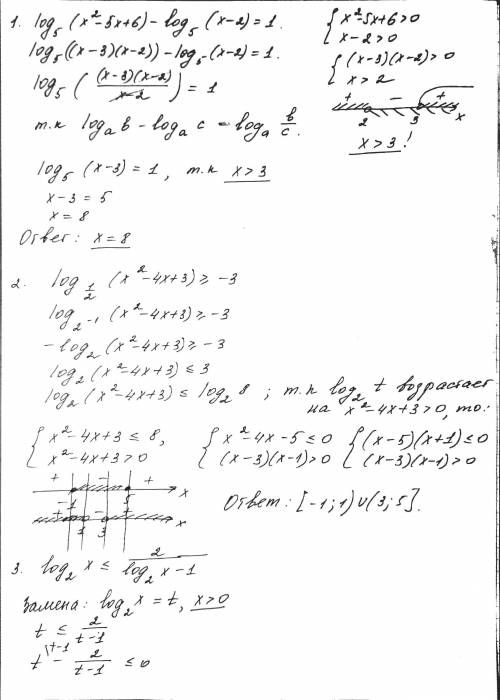 1. log₅ (x²-5x+6) - log₅ (x-2) = 1.
log₅ ((x-3)(x-2)) - log₅ (x-2) = 1.
log₅ ( (x-3)(x-2) / x-2 ) = 1
т.к logₐ b - logₐ c = logₐ b/c.
{ x²-5x+6>0
x-2>0
{ (x-3)(x-2)>0
x>2
+ - +
2 3 x
x>3!
log₅ (x-3) = 1, т.к x>3
x-3 = 5
x = 8
Ответ: x = 8
2. log_{1/2} (x²-4x+3) ≥ -3
log_{2⁻¹} (x²-4x+3) ≥ -3
-log₂ (x²-4x+3) ≥ -3
log₂ (x²-4x+3) ≤ 3
log₂ (x²-4x+3) ≤ log₂ 8 ; т.к log₂ t возрастает
на x²-4x+3>0, то:
{ x²-4x+3 ≤ 8, { x²-4x-5 ≤ 0 { (x-5)(x+1) ≤ 0
x²-4x+3>0 (x-3)(x-1)>0 (x-3)(x-1)>0
+ - +
-1 5 x
+ - +
1 3 x
Ответ: [-1; 1) ∪ (3; 5].
3. log₂ x ≤ 2 / log₂ x - 1
Замена: log₂ x = t, x>0
t ≤ 2 / t-1
t \t-1 - 2 / t-1 ≤ 0